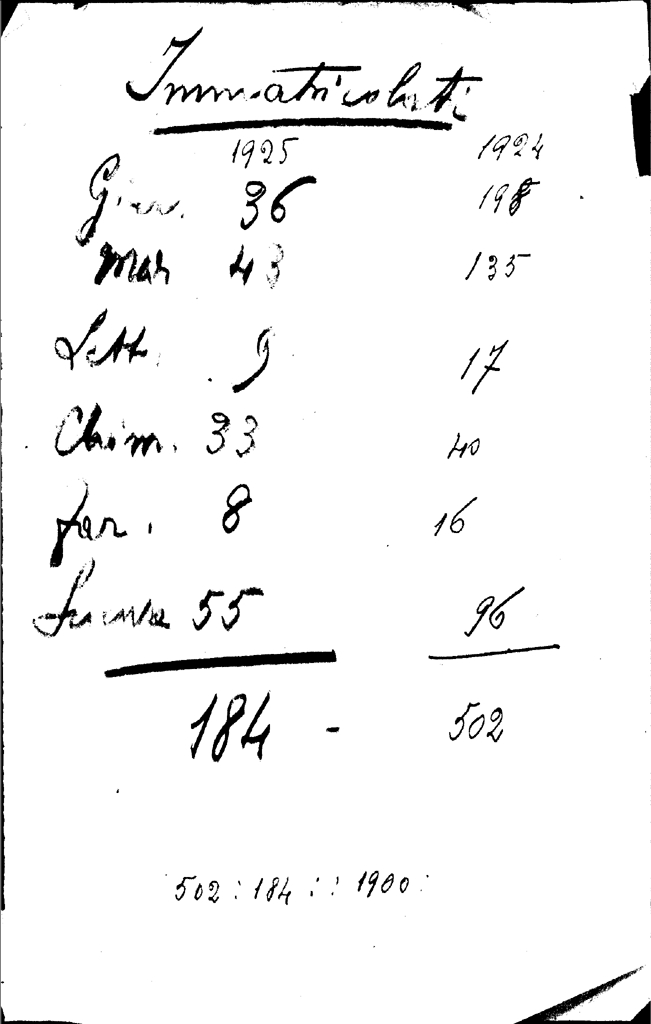 Immatricolati
1925 1924
Giur. 36 198
43 135
Lett. 9 17
Chim. 33 40
far. 8 16
55 96
184 - 502
502 : 184 : : 1900 :